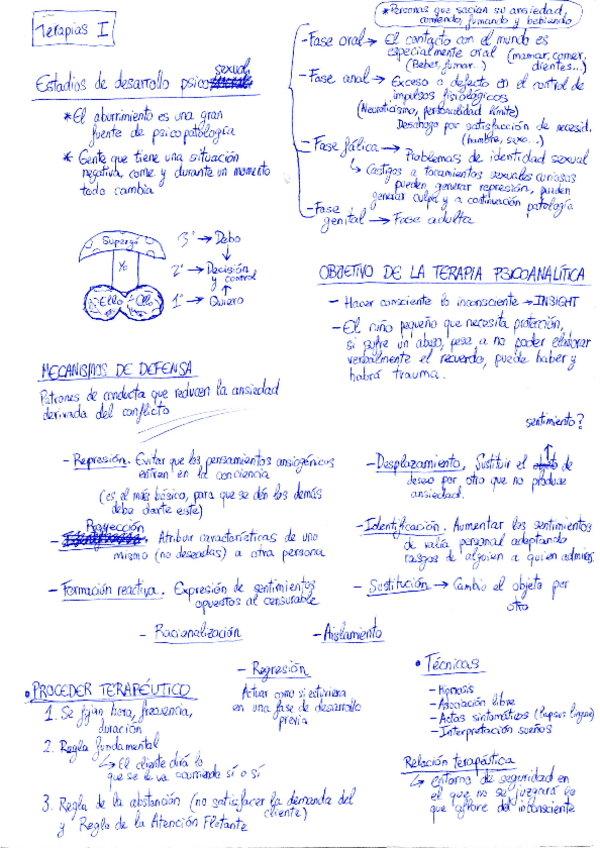 Terapias I
Estadios de desarrollo psicosexual
* El aburrimiento es una gran
fuente de psicopatología
* Gente que tiene una situación
negativa, come y durante un momento
todo cambia
* Personas que sacian su ansiedad,
comiendo, fumando y bebiendo
- Fase oral → El contacto con el mundo es
especialmente oral (mamar, comer,
(Beber, fumar..) dientes...)
- Fase anal → Exceso o defecto en el control de
impulsos fisiológicos
(Neuroticismo, personalidad límite)
Desahogo por satisfacción de necesid.
(hambre, sexo...)
- Fase fálica → Problemas de identidad sexual
↳ Castigos a tocamientos sexuales curiosos
pueden generar represión, pueden
generar culpa y a continuación patología
- Fase
genital → Fase adulta
Superyó
Yo
Ello Ello
3º → Debo
2º → Decisión
y control
1º → Quiero
OBJETIVO DE LA TERAPIA PSICOANALÍTICA
- Hacer consciente lo inconsciente → INSIGHT
- El niño pequeño que necesita protección,
si sufre un abuso, pese a no poder elaborar
verbalmente el recuerdo, puede haber y
habrá trauma.
MECANISMOS DE DEFENSA
Patrones de conducta que reducen la ansiedad
derivada del conflicto
- Represión. Evitar que los pensamientos ansiogénicos
entren en la conciencia
(es el más básico, para que se dén los demás
debe darse este)
- Proyección. Atribuir características de uno
mismo (no deseadas) a otra persona
- Formación reactiva. Expresión de sentimientos
opuestos al censurable
sentimiento?
- Desplazamiento. Sustituir el objeto de
deseo por otro que no produce
ansiedad.
- Identificación. Aumentar los sentimientos
de valía personal adoptando
rasgos de alguien a quien admiras.
- Sustitución → Cambio el objeto por
otro
- Racionalización
- Aislamiento
- Regresión
Actuar como si estuviera
en una fase de desarrollo
previa
• PROCEDER TERAPÉUTICO
1. Se fijan hora, frecuencia,
duración
2. Regla fundamental
↳ El cliente dirá lo
que se le va ocurriendo sí o sí
3. Regla de la abstención (no satisfacer la demanda del
cliente)
y Regla de la Atención Flotante
• Técnicas
- Hipnosis
- Asociación libre
- Actos sintomáticos (lapsus linguae)
- Interpretación sueños
Relación terapéutica
↳ entorno de seguridad en
el que no se juzgará lo
que aflore del inconsciente